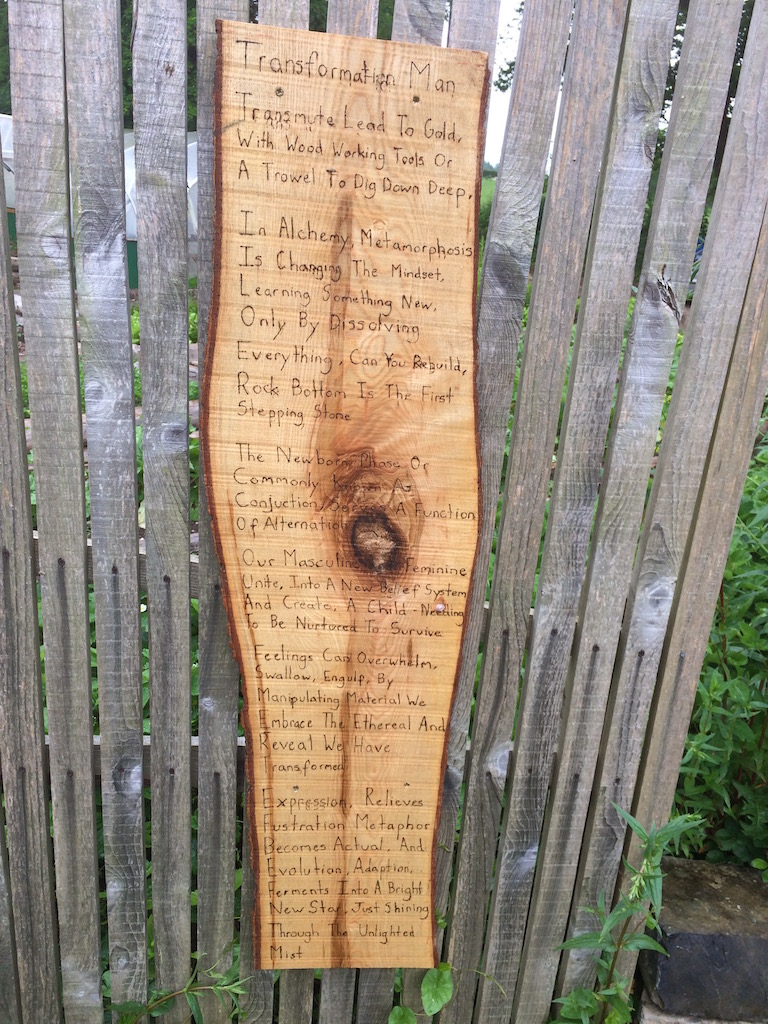 Transformation Man
Transmute Lead To Gold,
With Wood Working Tools Or
A Trowel To Dig Down Deep,
In Alchemy, Metamorphosis
Is Changing The Mindset,
Learning Something New,
Only By Dissolving
Everything, Can You Rebuild,
Rock Bottom Is The First
Stepping Stone
The Newborn Phase Or
Commonly Known As
Conjuction, A Function
Of Alternation
Our Masculine Feminine
Unite, Into A New Belief System
And Create, A Child - Needing
To Be Nurtured To Survive
Feelings Can Overwhelm,
Swallow, Engulf, By
Manipulating Material We
Embrace The Ethereal And
Reveal We Have
Transformed
Expression, Relieves
Fustration Metaphor
Becomes Actual, And
Evolution, Adaption,
Ferments Into A Bright
New Star, Just Shining
Through The Unlighted
Mist